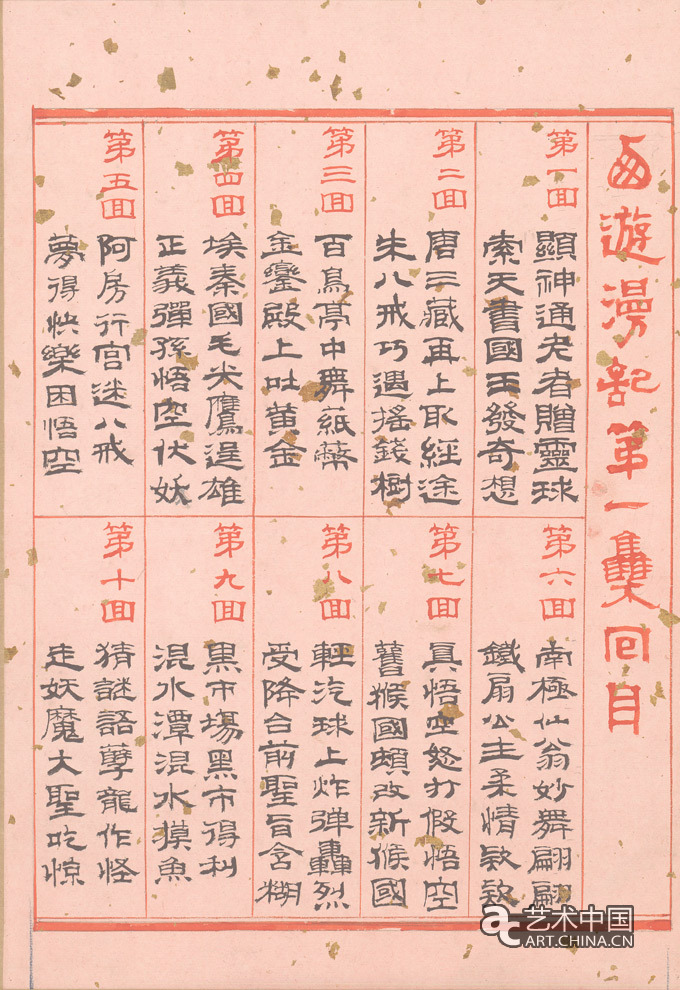 西遊漫記第一集回目
第一回
顯神通老者贈靈球
索天書國王發奇想
第二回
唐三藏再上取經途
朱八戒巧遇搖錢樹
第三回
百鳥亭中舞紙幣
金鑾殿上吐黃金
第四回
埃秦國毛尖鷹逞雄
正義彈孫悟空伏妖
第五回
阿房行宮迷八戒
夢得快樂困悟空
第六回
南極仙翁妙舞翩翩
鐵扇公主柔情款款
第七回
真悟空怒打假悟空
舊猴國頓改新猴國
第八回
輕汽球上炸弹轟烈
受降台前聖旨含糊
第九回
黑市場黑市得利
混水潭混水摸魚
第十回
猜謎語孽龍作怪
走妖魔大聖吃惊
艺术中国
ART.CHINA.CN